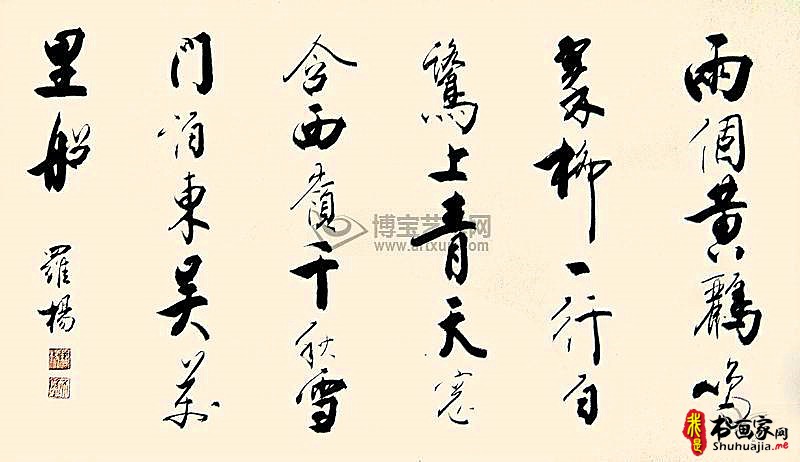 兩個黃鸝鳴
翠柳一行白
鷺上青天窓
含西嶺千秋雪
門泊東吴萬
里船
羅楊
博宝艺术网
www.artxun.com
我是
书画家网
Shuhuajia.me